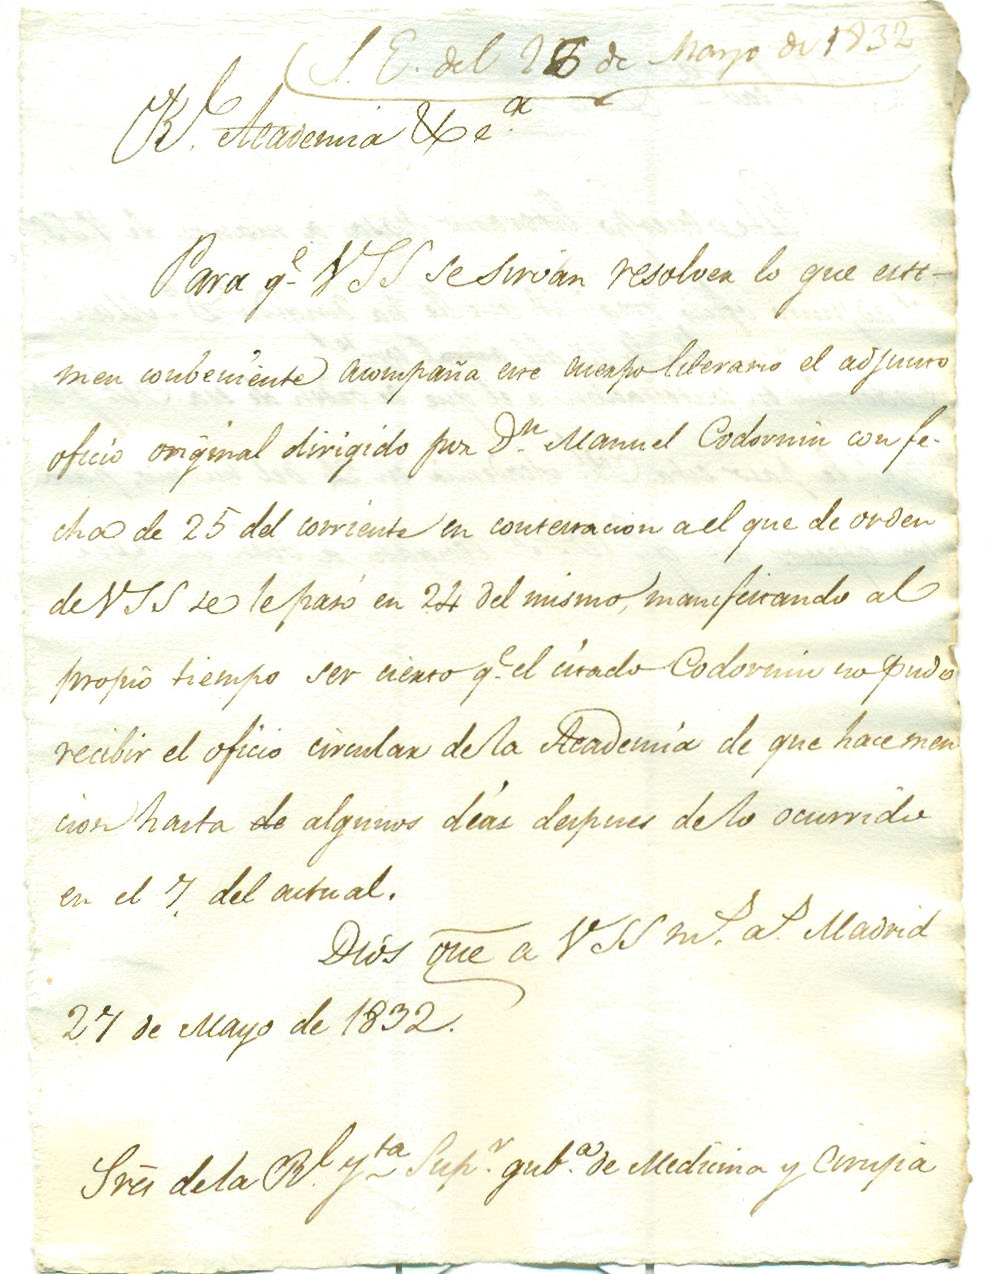 S. E. del 28 de Mayo de 1832
Rl. Academia &c.a
Para q.e VSS se sirvan resolver lo que esti-
men conbeniente acompaña este cuerpo literario el adjunto
oficio original dirigido por Dn. Manuel Codorniu con fe-
cha de 25 del corriente en contestacion a el que de orden
de VSS se le pasó en 24 del mismo, manifestando al
propio tiempo ser cierto q.e el citado Codorniu no pudo
recibir el oficio circular de la Academia de que hace men
cion hasta de algunos dias despues de lo ocurrido
en el 7. del actual.
Dios gue a VSS m.s a.s Madrid
27 de Mayo de 1832.
Sres de la Rl. y ta Sup.r gub.a de Medicina y Cirujia